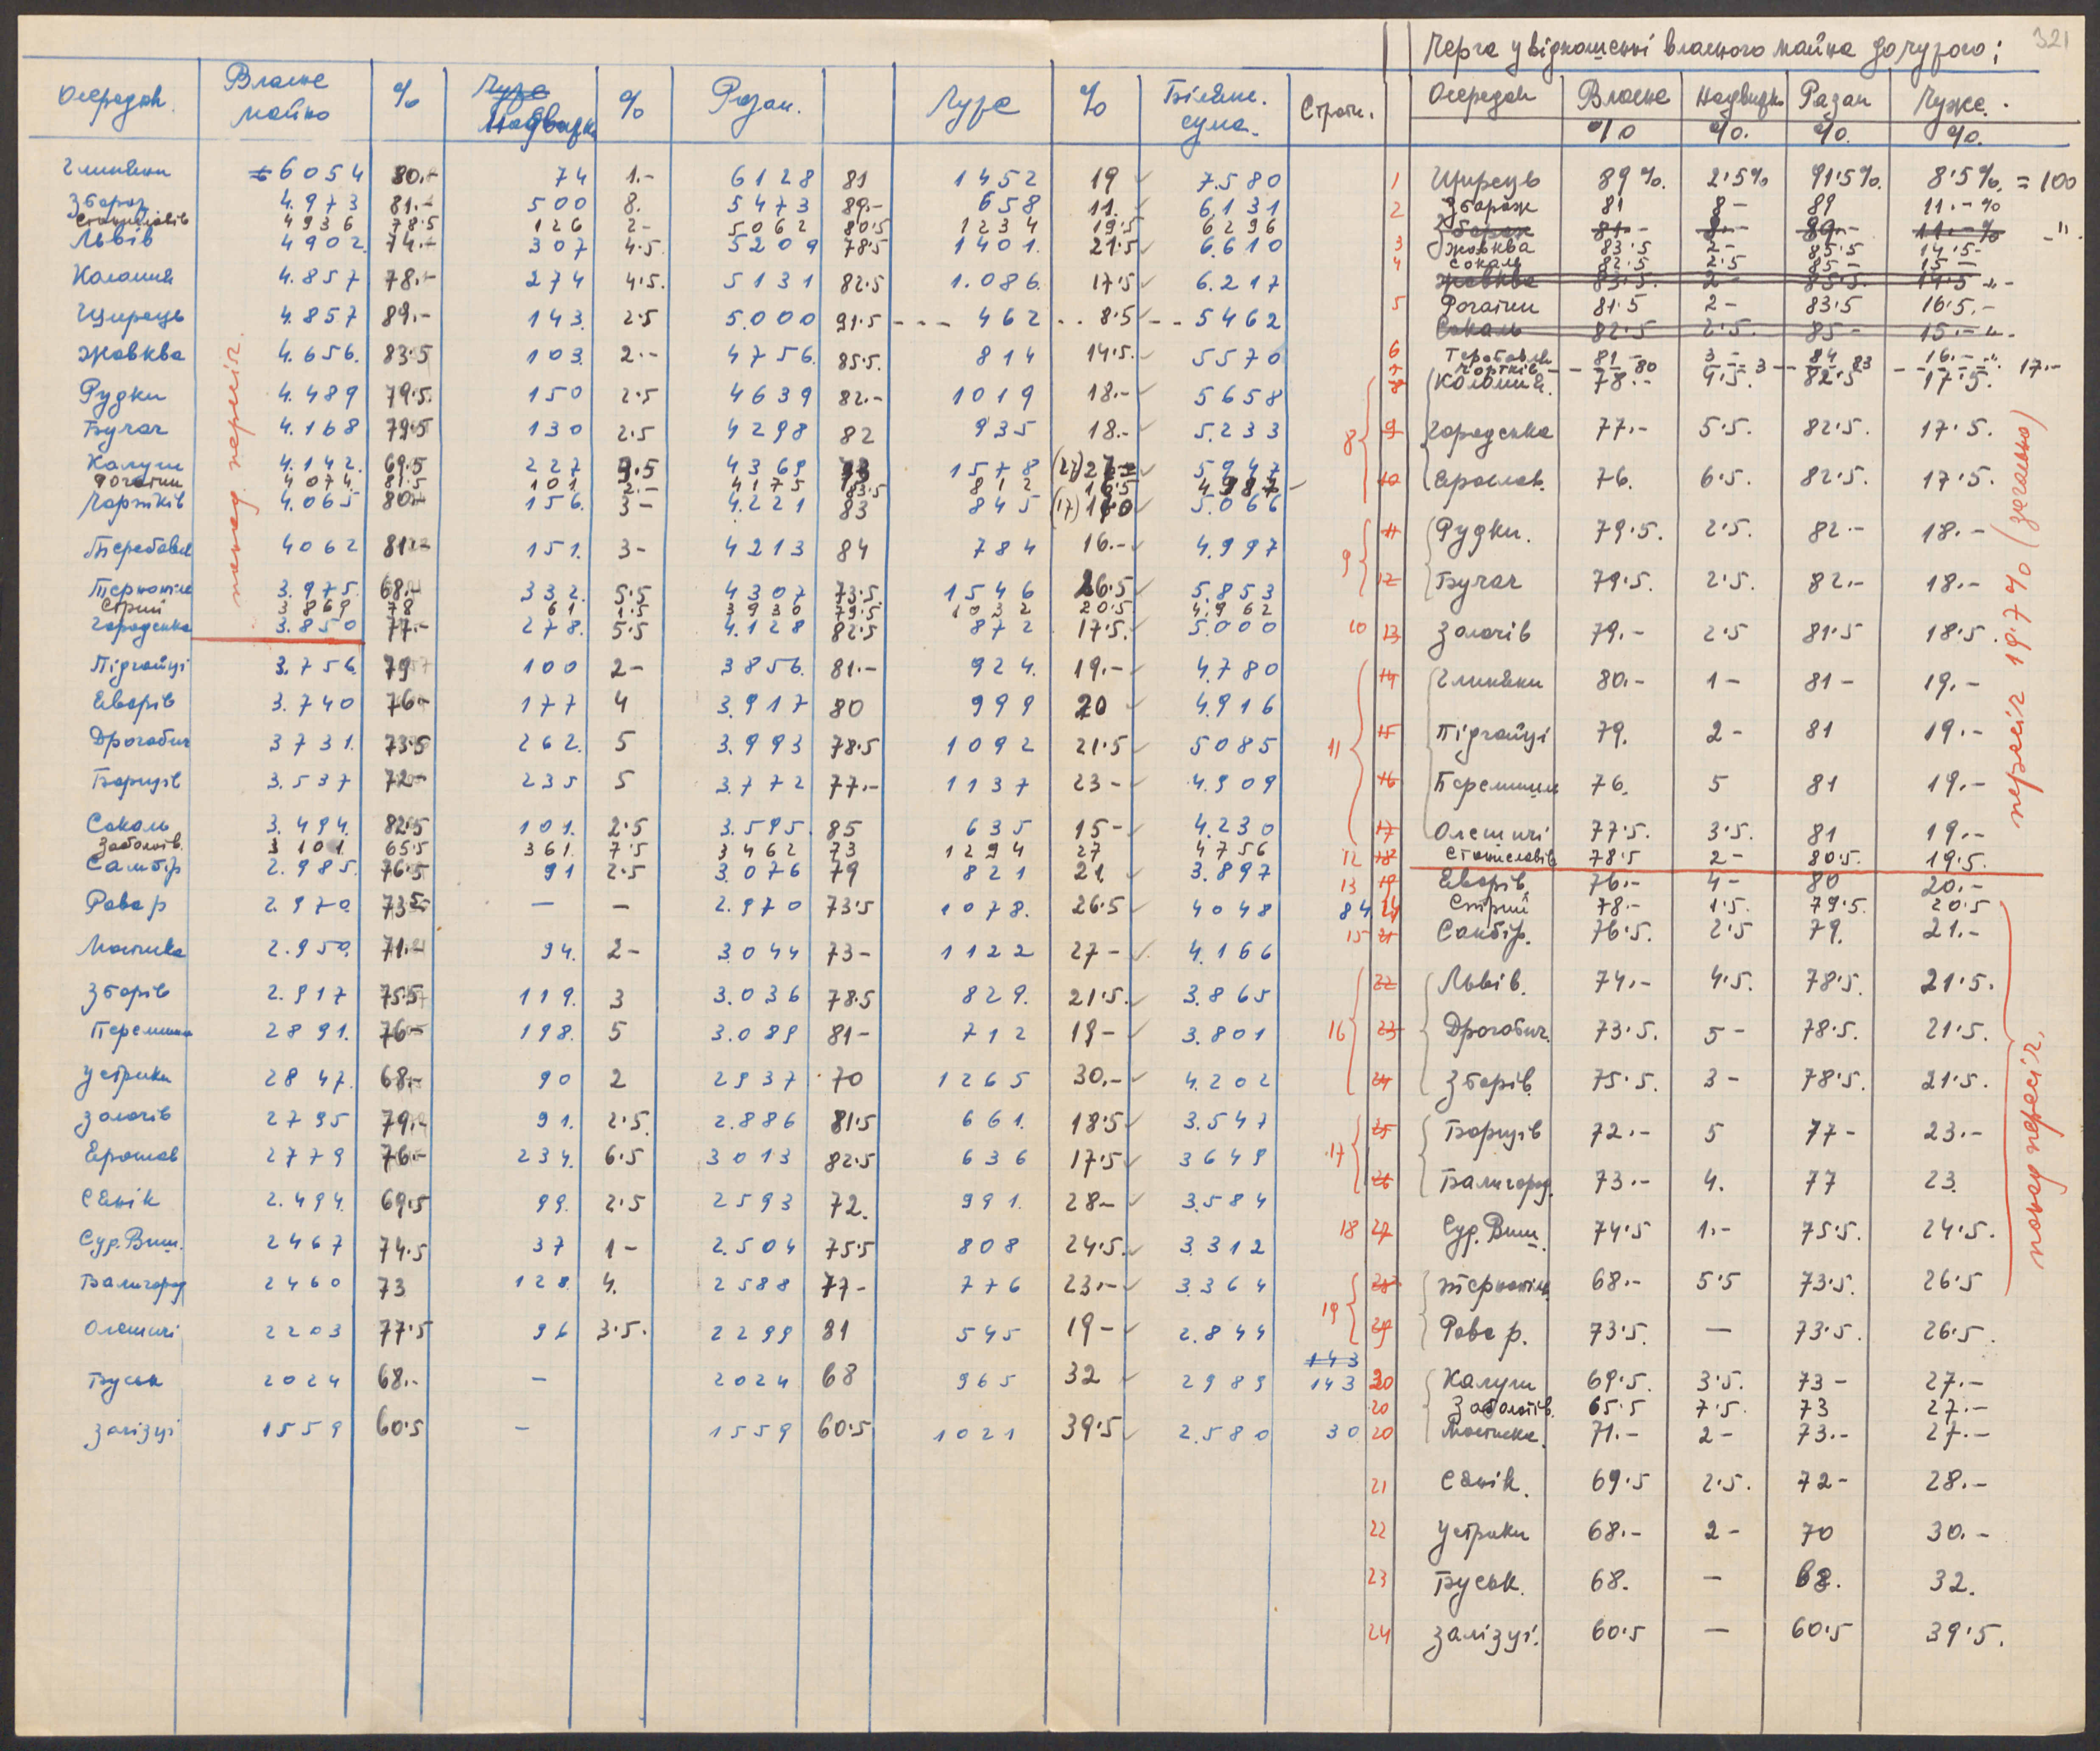 321
Черга у відношенні власного майна до чужого:
Осередок. Власне майно % Чуже Надвижка % Разом. Чуже % Білянс. сума. Страти.
Глиняни 6054 80.- 74 1.- 6128 81 1452 19 7.580
Збараж 4.973 81.- 500 8. 5473 89.- 658 11. 6.131
Станиславів 4936 78.5 126 2- 5062 80.5 1234 19.5 6296
Львів 4902. 74.- 307 4.5. 5209 78.5 1401. 21.5 6.610
Коломия 4.857 78.- 274 4.5. 5131 82.5 1.086. 17.5 6.217
Щирець 4.857 89.- 143. 2.5 5.000 91.5 --- 462 .. 8.5 -- 5462
Жовква 4.656. 83.5 103. 2.- 4756. 85.5. 814 14.5. 5570
Рудки 4.489 79.5. 150 2.5 4639 82.- 1019 18.- 5658
Бучач 4.168 79.5 130 2.5 4298 82 935 18.- 5.233
Калуш 4.142. 69.5 227 3.5 4369 73 1578 (27) 5947
Рогатин 4074. 81.5 101 2.- 4175 83.5 812 16.5 4987
Чортків 4.065 80.- 156. 3- 4.221 83 845 (17) 5.066
Теребовля 4062 81.- 151. 3- 4213 84 784 16.- 4.997
Тернопіль 3.975. 68.- 332. 5.5 4307 73.5. 1546 26.5 5.853
Стрий 3869 78 61 1.5 3930 79.5. 1032 20.5 4.962
Городенка 3.850 77.- 278. 5.5 4.128 82.5 872 17.5. 5.000
Підгайці 3.756. 79 100 2- 3856. 81.- 924. 19.- 4.780
Яворів 3.740 76- 177 4 3.917 80 999 20 4.916
Дрогобич 3731. 73.5 262. 5 3.993 78.5 1092 21.5 5085
Борщів 3.537 72- 235 5 3.772 77.- 1137 23- 4.909
Сокаль 3.494. 82.5 101. 2.5 3.595. 85 635 15- 4.230
Заболотів. 3101. 65.5 361. 7.5 3462 73 1294 27 4756
Самбір 2.985. 76.5 91 2.5 3.076 79 821 21 3.897
Рава р 2.970. 73.5 — — 2.970 73.5 1078. 26.5 4048
Мостиска 2.950. 71.- 94. 2- 3.044 73- 1122 27- 4.166
Зборів 2.917 75.5 119. 3 3.036 78.5 829. 21.5. 3.865
Перемишль 2891. 76- 198. 5 3.089 81- 712 19- 3.801
Устрики 2847. 68.- 90 2 2937 70 1265 30.- 4.202
Золочів 2795 79. 91. 2.5. 2.886 81.5 661. 18.5 3.547
Ярослав 2779 76.- 234. 6.5 3013 82.5 636 17.5 3649
Сянік 2.494. 69.5 99. 2.5 2593 72. 991. 28- 3.584
Суд. Виш. 2467 74.5 37 1- 2.504 75.5 808 24.5. 3.312
Балигород 2460 73 128. 4. 2588 77- 776 23.- 3.364
Олешичі 2203 77.5 96 3.5. 2299 81 545 19- 2.844
Буськ 2024 68.- — 2024 68 965 32 2989
Залізці 1559 60.5 — 1559 60.5 1021 39.5 2.580
понад пересіч.
143
143
30
Осередок Власне Надвижка Разом Чуже.
% %. %. %.
1 Щирець 89%. 2.5% 91.5%. 8.5%. = 100
2 Збараж 81 8- 89 11.-%
Збараж 81- 8- 89.- 11.-% -"-
3 Жовква 83.5 2- 85.5 14.5-
4 Сокаль 82.5 2.5 85- 15-
Жовква 83.5. 2- 85.5. 14.5 -"-
5 Рогатин 81.5 2- 83.5 16.5.-
Сокаль 82.5 2.5. 85- 15.- -"-
6 Теребовля 81- 3- 84 16.-
7 Чортків 80 3 83 17.-
8 Коломия. 78.- 4.5. 82.5 17.5.
9 Городенка 77.- 5.5. 82.5. 17.5.
10 Ярослав. 76. 6.5. 82.5. 17.5.
8
11 Рудки. 79.5. 2.5. 82.- 18.-
12 Бучач 79.5. 2.5. 82.- 18.-
9
10 13 Золочів 79.- 2.5 81.5 18.5.
14 Глиняни 80.- 1- 81- 19.-
15 Підгайці 79. 2- 81 19.-
16 Перемишль 76. 5 81 19.-
17 Олешичі 77.5. 3.5. 81 19.-
11
12 18 Станиславів 78.5 2- 80.5. 19.5.
13 19 Яворів. 76.- 4- 80 20.-
84 Стрий 78.- 1.5. 79.5. 20.5
15 21 Самбір. 76.5. 2.5 79. 21.-
22 Львів. 74.- 4.5. 78.5. 21.5.
16 23 Дрогобич. 73.5. 5- 78.5. 21.5.
24 Зборів. 75.5. 3- 78.5. 21.5.
25 Борщів 72.- 5 77- 23.-
17
26 Балигород. 73.- 4. 77 23.
18 27 Суд. Виш. 74.5 1.- 75.5. 24.5.
28 Тернопіль. 68.- 5.5 73.5. 26.5
19
29 Рава р. 73.5. — 73.5. 26.5.
20 Калуш 69.5. 3.5. 73- 27.-
20 Заболотів. 65.5 7.5. 73 27.-
20 Мостиска. 71.- 2- 73.- 27.-
21 Сянік. 69.5 2.5. 72- 28.-
22 Устрики 68.- 2- 70 30.-
23 Буськ. 68. — 68. 32.
24 Залізці. 60.5 — 60.5 39.5.
пересіч 19.7% (загально)
понад пересіч.